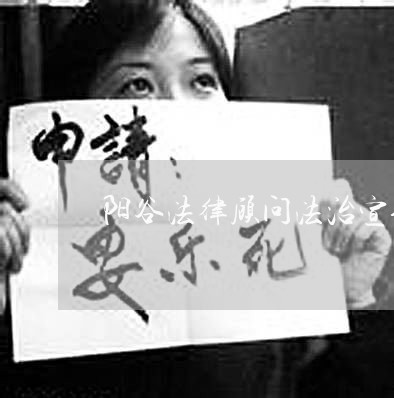 申請：
阳谷法律顾问法治宣
安乐死